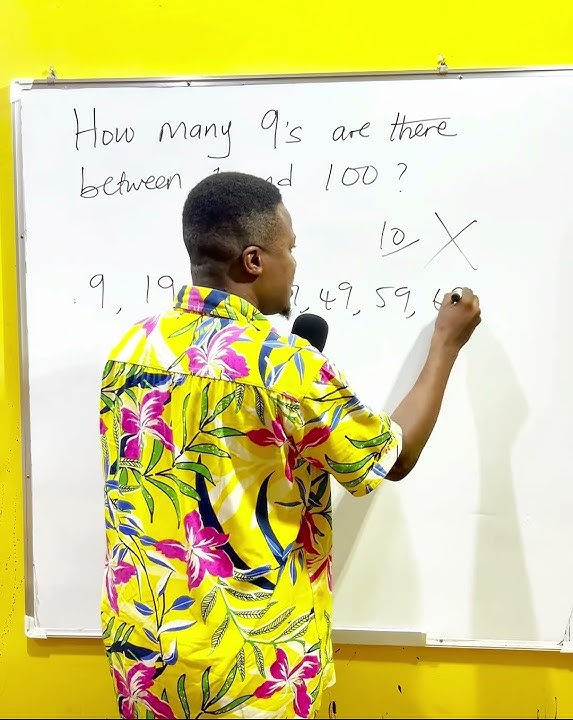 How many 9's are there
between nd 100 ?
10 X
9, 19 , 49, 59,